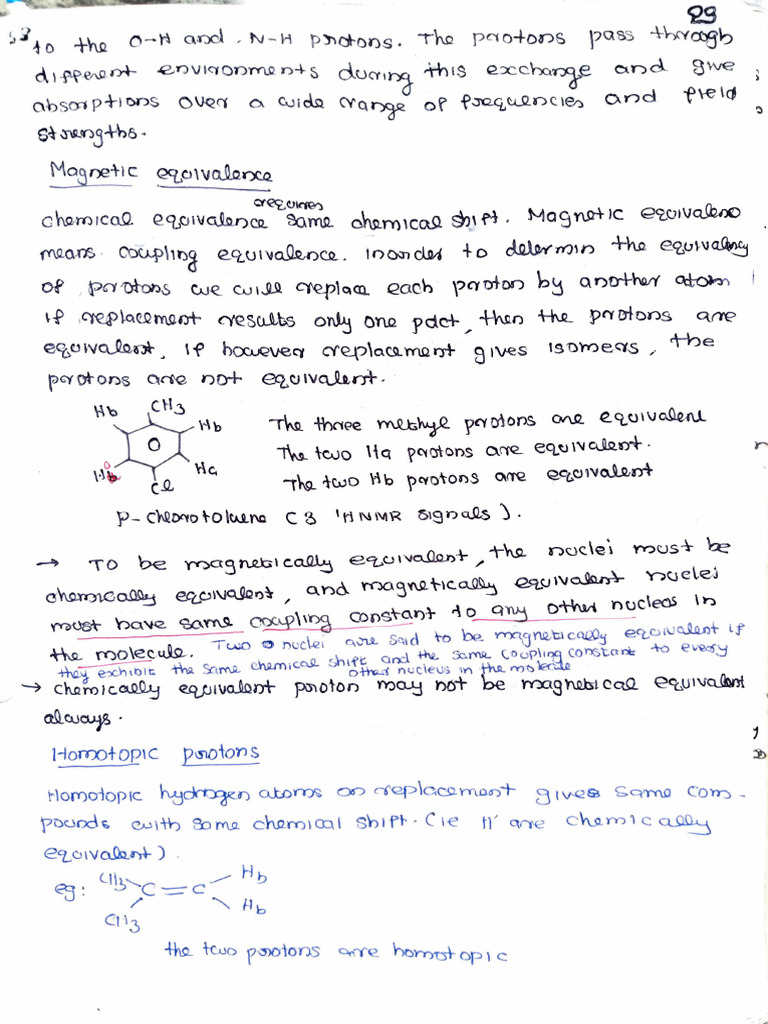 29
to the O-H and N-H protons. The protons pass through
different environments during this exchange and give
absorptions over a wide range of frequencies and field
strengths.
Magnetic equivalence
chemical equivalence requires same chemical shift. Magnetic equivalenc
means coupling equivalence. Inorder to determin the equivalency
of protons we will replace each proton by another atom
if replacement results only one pdct, then the protons are
equivalent, if however replacement gives isomers, the
protons are not equivalent.
Hb CH3
Hb The three methyl protons are equivalent
The two Ha protons are equivalent.
Ha
The two Hb protons are equivalent
Cl
P-chlorotoluene C 3 'HNMR signals ).
→ To be magnetically equivalent, the nuclei must be
chemically equivalent, and magnetically equivalent nuclei
must have same coupling constant to any other nucleos in
the molecule. Two nuclei are said to be magnetically equivalent if
they exhibit the same chemical shift and the same coupling constant to every
other nucleus in the molecule
→ chemically equivalent proton may not be magnetical equivalent
always.
Homotopic protons
Homotopic hydrogen atoms on replacement gives same com-
pounds with same chemical shift. (ie are chemically
equivalent)
eg: CH3 C=C Hb
CH3 Hb
the two protons are homotopic